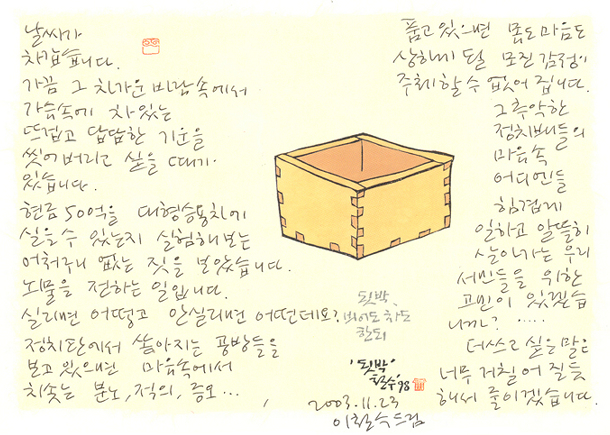 날씨가
차갑습니다.
가끔 그 차가운 바람속에서
가슴속에 차있는
뜨겁고 답답한 기운을
씻어버리고 싶을 때가
있습니다.
현금 50억을 대형승용차에
실을수 있는지 실험해보는
어처구니 없는 짓을 보았습니다.
뇌물을 전하는 일입니다.
실리면 어떻고 안실리면 어떤데요?
정치판에서 쏟아지는 공방들을
보고있으면 마음속에서
치솟는 분노, 적의, 증오...
됫박,
비어도 차도
한되
'됫박'
철수 '98
2003.11.23
이철수드림
품고있으면 몸도마음도
상하게 될 모진감정이
주체할수 없어집니다.
그 추악한
정치배들의
마음속
어디엔들
힘겹게
일하고 알뜰히
살아가는 우리
서민들을 위한
고민이 있겠습
니까? .....
더쓰고싶은말은
너무 거칠어질듯
해서 줄이겠습니다.